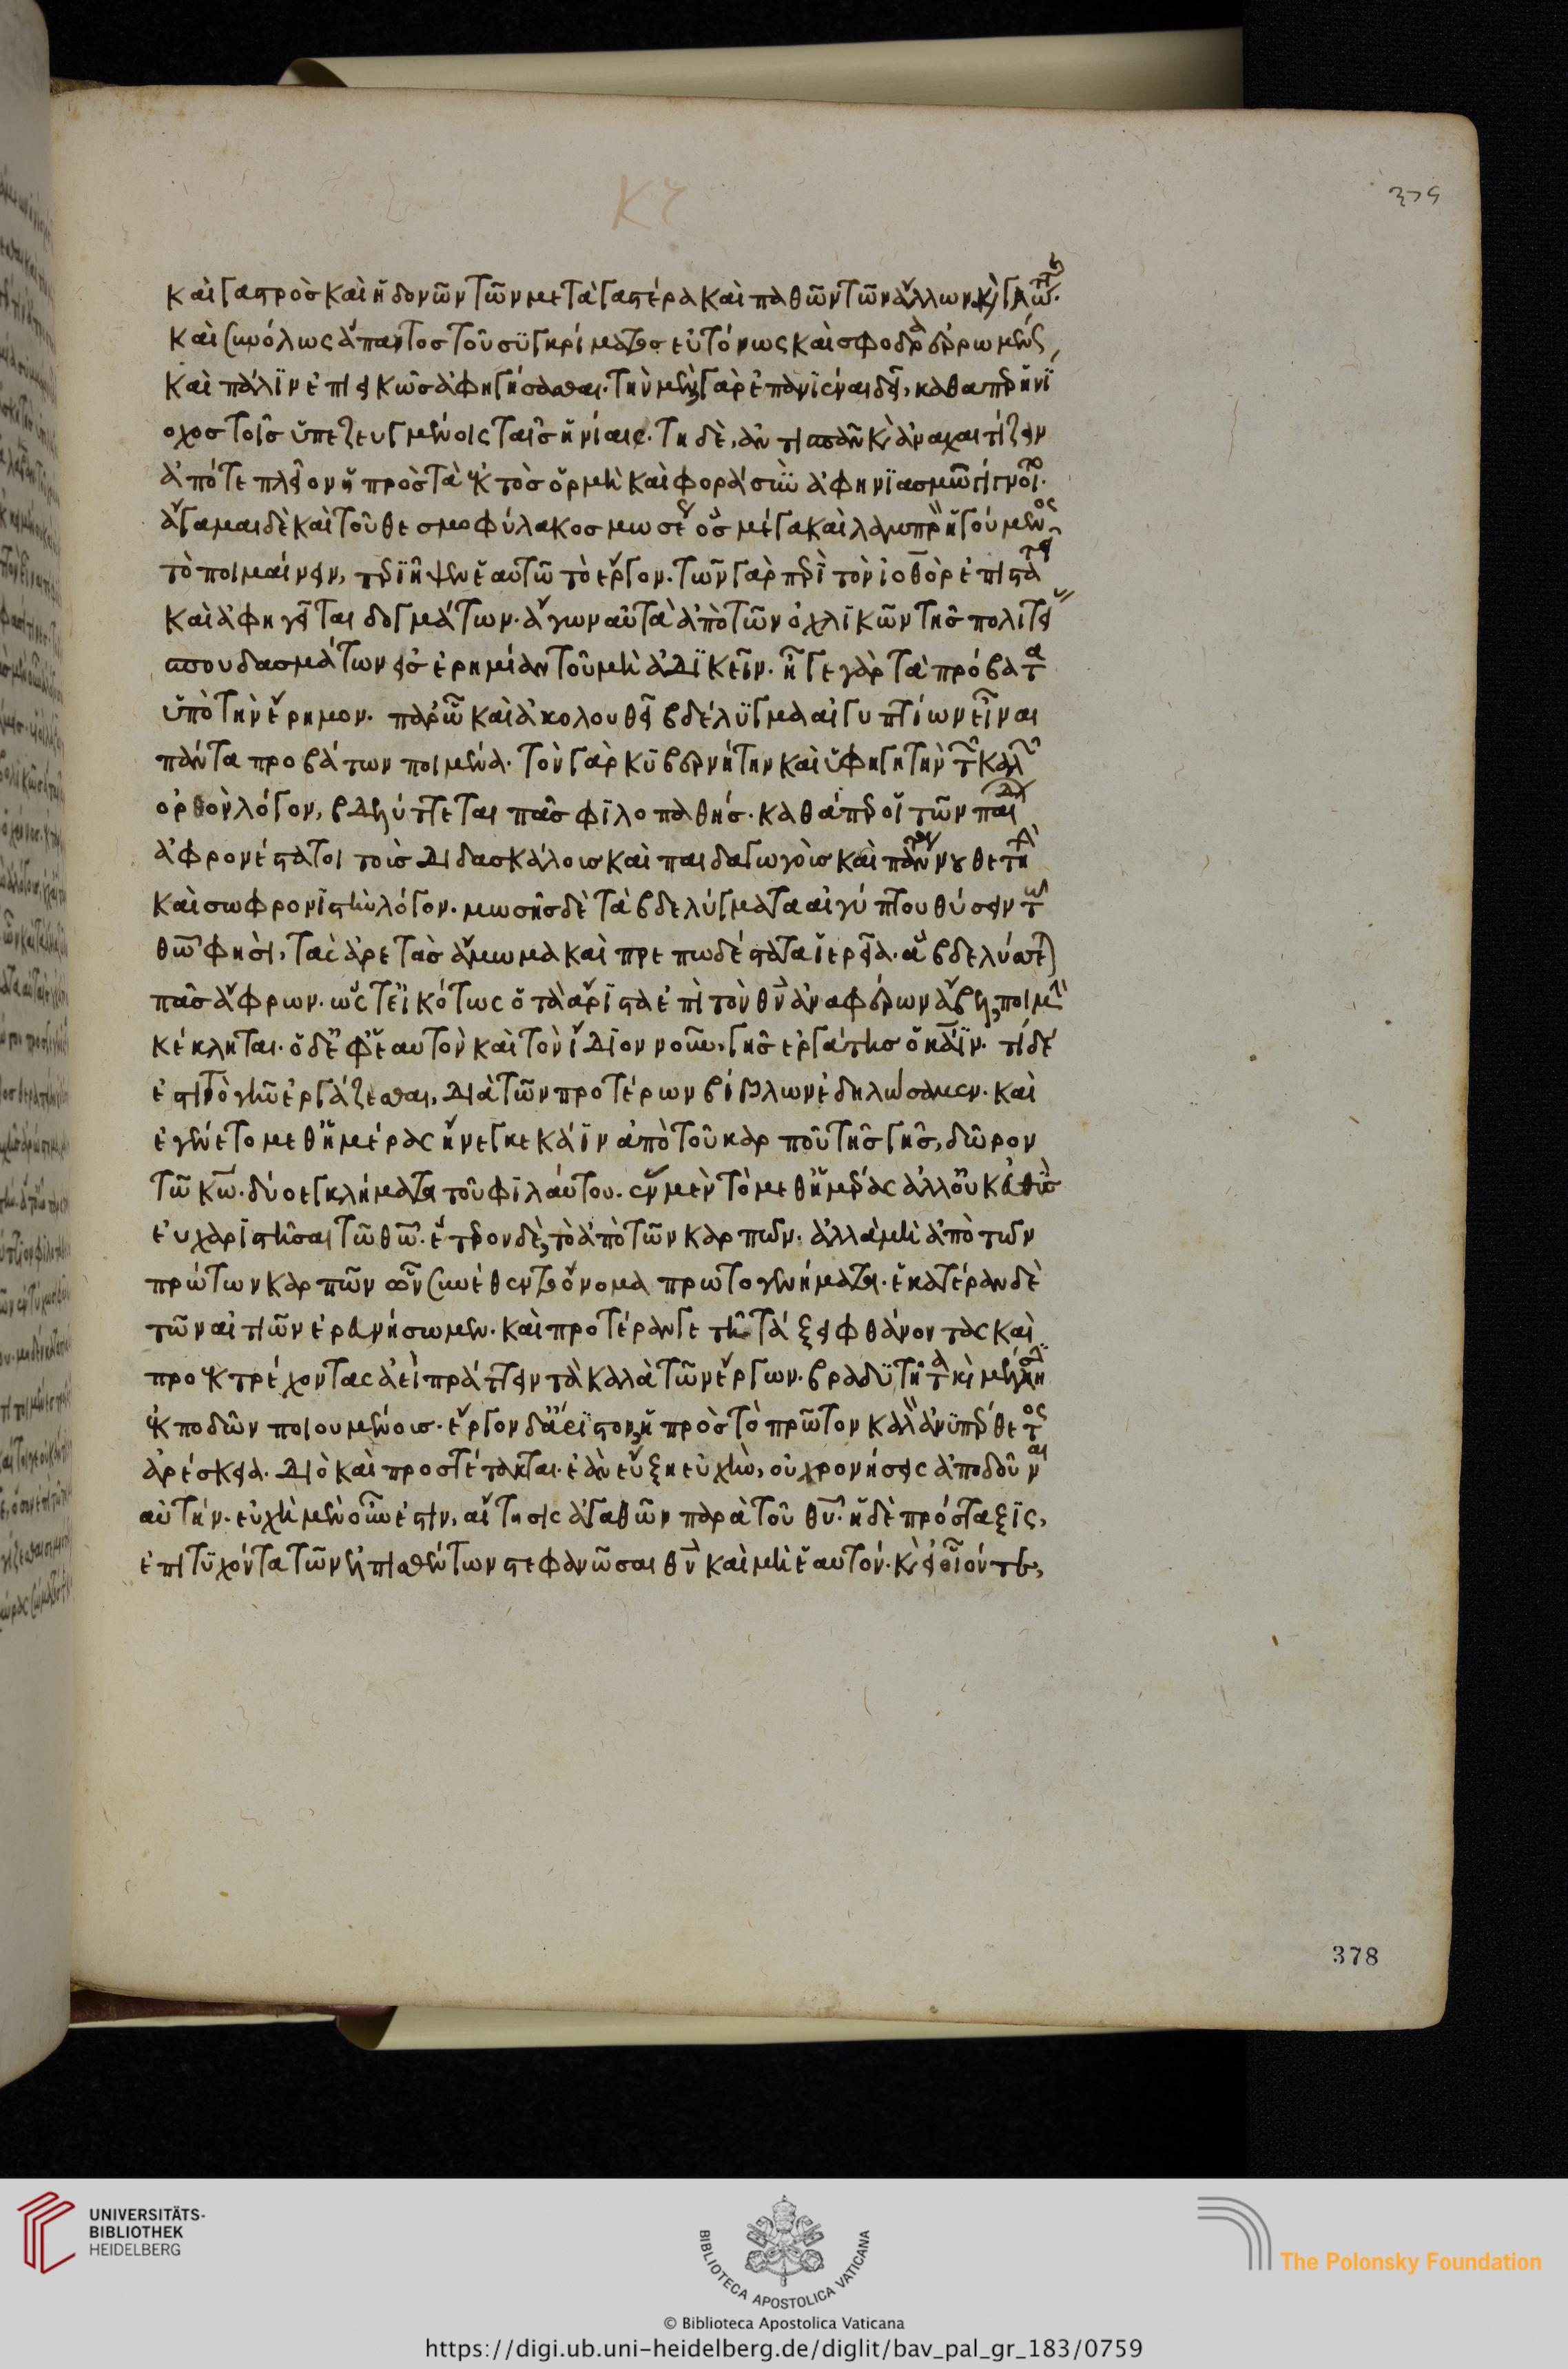 καὶ γαστρὸς καὶ ἡδονῶν τῶν μετὰ γαστέρα καὶ παθῶν τῶν ἄλλων κ(αὶ) γλώττης·
καὶ συνόλως ἅπαντος τοῦ συγκρίματος εὐτόνως καὶ σφοδρὰ ἐρρωμένως,
καὶ πάλϊν ἐπιεικῶς ἀφηγήσασθαι. τὴν μὲν γὰρ ἐπανϊέναι δεῖ, καθάπερ ἡνΐ
οχος τοῖς ὑπεζευγμένοις ταῖς ἡνίαις. τὴ δὲ, ἀντισπᾶν κ(αὶ) ἀναχαιτίζειν
ἁπότε πλεῖον ἡ πρὸς τὰ ἐκτὸς ὁρμὴ καὶ φορὰ σὺν ἀφηνϊασμῶ γίγνοιτο.
ἄγαμαι δὲ καὶ τοῦ θεσμοφύλακος μωσέως ὃς μέγα καὶ λαμπρὸν ἡγούμενος
τὸ ποιμαίνειν, τρϊῆψεν ἑαυτῶ τὸ ἔργον. τῶν γὰρ περὶ τὸν ἰοθὸρ ἐπιστατεῖ
καὶ ἀφηγεῖται δογμάτων. ἄγων αὐτὰ ἀπὸ τῶν ὀχλϊκῶν τῆς πολιτείας
σπουδασμάτων εἰς ἐρημίαν τοῦ μὴ ἀδϊκεῖν. ἦγε γὰρ τὰ πρόβατα
ὑπὸ τὴν ἔρημον. παρὸ καὶ ἀκολουθεῖ βδέλϋγμα αἰγυπτίων εἶναι
πάντα προβάτων ποιμένα. τὸν γὰρ κϋβερνήτην καὶ ὑφηγητὴν τῶν καλῶν
ὀρθὸν λόγον, βδελύττεται πᾶς φϊλοπαθής. καθάπερ οἱ τῶν παίδων
ἀφρονέστατοι τοὶς διδασκάλοις καὶ παιδαγωγοὶς καὶ πάντα νουθετητὴν
καὶ σωφρονϊστὴν λόγον. μωσῆς δὲ τὰ βδελύγματα αἰγύπτου θύσειν τῶ
θῶ φησὶ, τὰς ἀρετὰς ἄμωμα καὶ πρεπωδέστατα ἱερεῖα. ἃ βδελύσσεται
πᾶς ἄφρων. ὥς τε ΐκότως ὁ τὰ ἄρϊστα ἐπὶ τὸν θν ἀναφέρων ἄβελ, ποιμὴν
κέκληται. ὁ δὲ ἐφ ἑαυτὸν καὶ τὸν ἴδϊον νοῦν, γῆς ἐργάτης ὁ κάϊν. τί δέ
ἐστι τὸ γῆν ἐργάζεσθαι, διὰ τῶν προτέρων βίβλων ἐδηλώσαμεν. καὶ
ἐγένετο μεθ ἡμέρας ἤνεγκε κάϊν ἀπὸ τοῦ καρποῦ τῆς γῆς, δῶρον
τῶ κω. δύο ἐγκλήματα τοῦ φϊλαύτου. ἓν μὲν τὸ μεθ ἡμέρας ἀλλ οὐκ εὐθὺς
εὐχαρϊστῆσαι τῶ θω. ἕτερον δὲ, τὸ ἀπὸ τῶν καρπῶν. ἀλλὰ μὴ ἀπὸ τῶν
πρώτων καρπῶν ὧν συνέθεντο ὄνομα πρωτογεννήματα. ἑκατέραν δὲ
τῶν αἰτιῶν ἐρευνήσωμεν. καὶ προτέραν γε τῆ τάξει φθάνοντας καὶ
προεκτρέχοντας ἀεὶ πράττειν τὰ καλὰ τῶν ἔργων. βραδϋτῆτα κ(αὶ) μέλλησϊν
ἐκποδὼν ποιουμένοις. ἔργον δ ἄρϊστον, ἡ πρὸς τὸ πρῶτον καλὸν ἀνϋπέρθετος
ἀρέσκεια. διὸ καὶ προστέτακται. ἐὰν εὔξη εὐχὴν, οὐ χρονήσεις ἀποδοῦναι
αὐτήν. εὐχὴ μὲν οὖν ἐστιν, αἴτησις ἀγαθῶν παρὰ τοῦ θυ. ἡ δὲ πρόσταξϊς,
ἐπιτϋχόντα τῶν ἐλπισθέντων στεφανῶσαι θν καὶ μὴ ἑαυτόν. κ(αὶ) εἰ οἷόν τε,
378
UNIVERSITÄTS-
BIBLIOTHEK
HEIDELBERG
BIBLIOTECA APOSTOLICA VATICANA
The Polonsky Foundation
© Biblioteca Apostolica Vaticana
https://digi.ub.uni-heidelberg.de/diglit/bav_pal_gr_183/0759